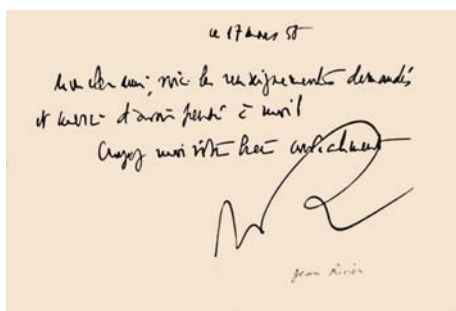 ce 17 mars 58
Mon cher ami, voici les renseignements demandés
et merci d'avoir pensé à moi!
Croyez moi votre très cordialement
Jean Rivier